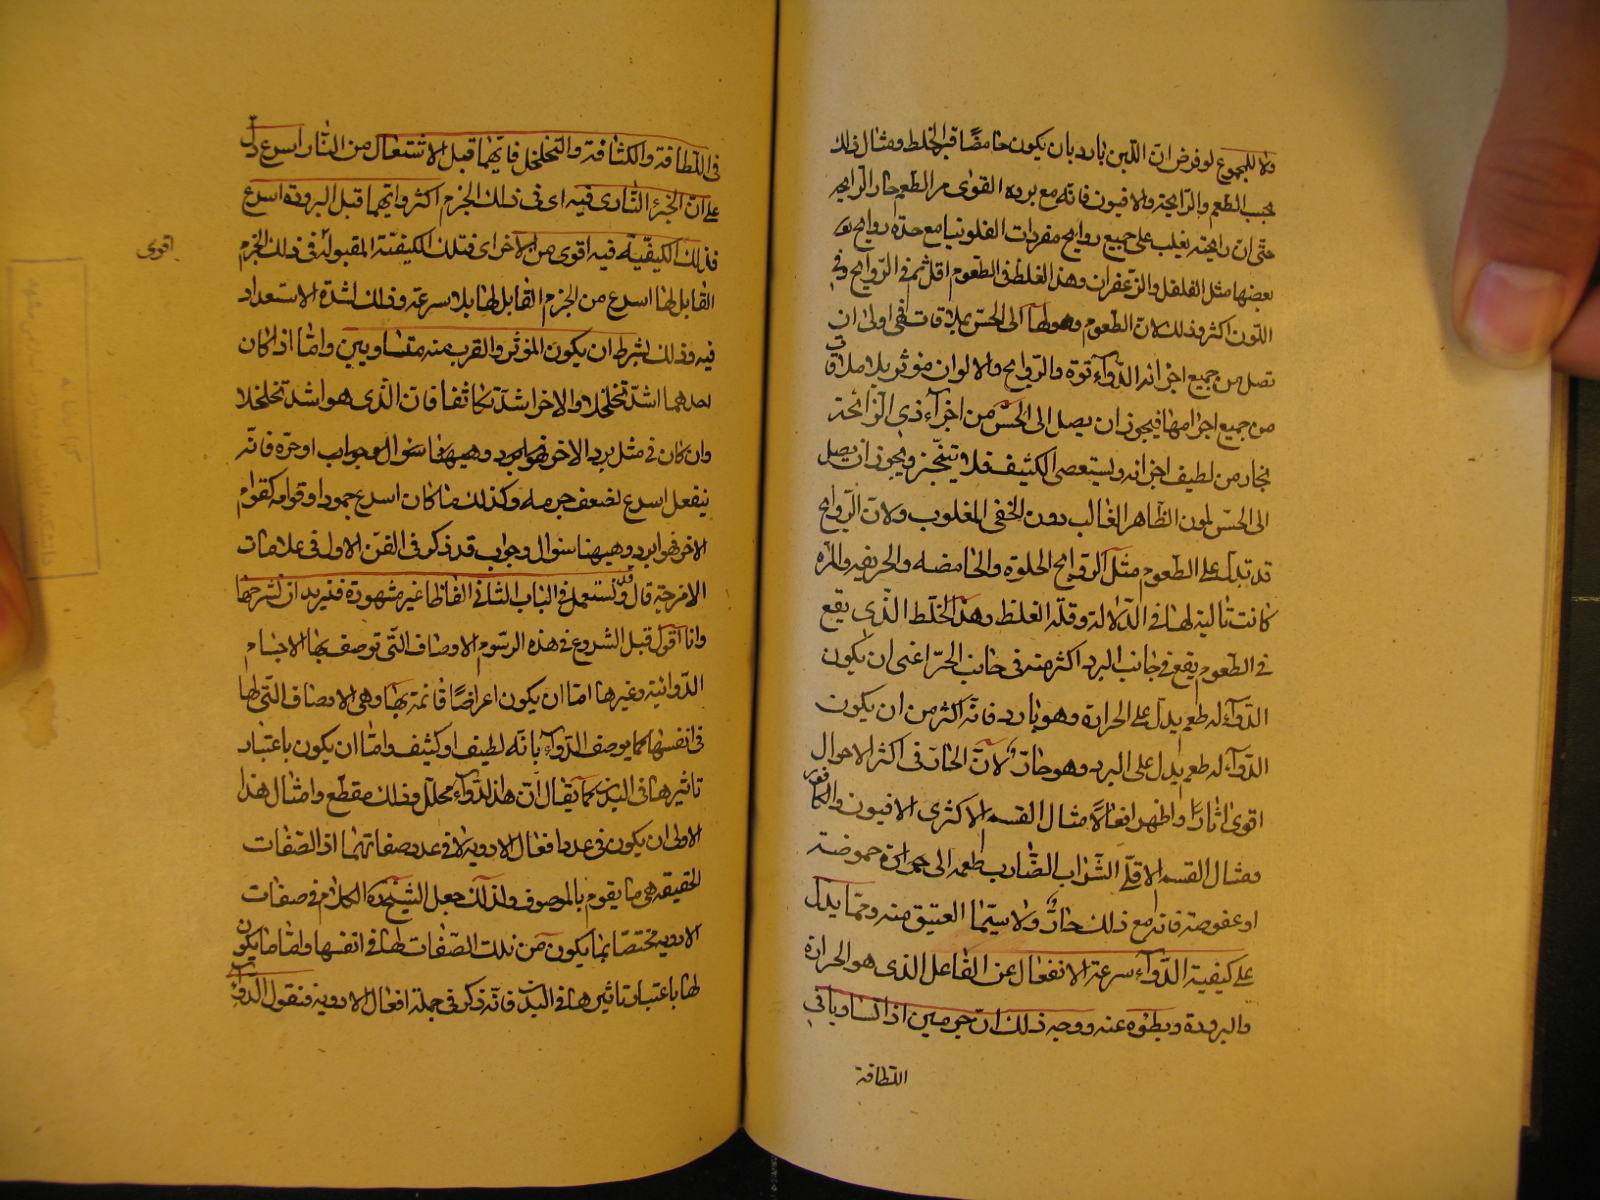 ولا للمجموع لو فرض ان اللبن بارد بان يكون حامضًا قبل الخلط ومثال ذلك
بحسب الطعم والرايحة والافيون فانه مع برده القوى مر الطعم حار الرايحة
حتى ان رايحته يغلب على جميع روايح مفردات الفلونيا مع حدة روايح
بعضها مثل الفلفل والزعفران وهذا الغلط فى الطعوم اقل ثم فى الروايح وفى
اللون اكثر وذلك لان الطعوم وصولها الى الحس بملاقات فهى اولى ان
تصل من جميع اجزائه الدوآء قوة والروايح والالوان مؤثر بلا ملاقات
من جميع اجرامها فيجوز ان يصل الى الحس من اجزآء ذى الرائحة
بخار من لطيف اجزائه ويستعصى الكثيف فلا يتبخر ويجوز ان يصل
الى الحس لون الظاهر الغالب دون الخفى المغلوب ولان الروايح
قد تدل على الطعوم مثل الروايح الحلوة والحامضه والحريفه والمره
كانت تالية لها فى الدلالة وقلة الغلط وهذا الخلط الذى يقع
فى الطعوم يقع فى جانب البرد اكثر منه فى جانب الحر اعنى ان يكون
الدوآء له طعم يدل على الحرارة وهو بارد فانه اكثر من ان يكون
الدوآء له طعم يدل على البرد وهو حار لان الحار فى اكثر الاحوال
اقوى اثارًا واظهر افعالاً مثال القسم الاكثرى الافيون والكافور
ومثال القسم الاقلى الشراب الضارب طعمه الى حموضة
او عفوصة فانه مع ذلك حار ولا سيما العتيق منه ومما يدل
على كيفية الدوآء سرعة الانفعال عن الفاعل الذى هو الحرارة
والبرودة وبطؤه عنه ووجه ذلك ان جرمين اذا تساويا فى
اللطافة
فى اللطافة والكثافة والتخلخل فايهما قبل الاشتعال من النار اسرع دل
على ان الجزء النارى فيه اى فى ذلك الجرم اكثر وايهما قبل البرودة اسرع
فذلك الكيفية فيه اقوى من الاخر اى فتلك الكيفية المقبولة فى ذلك الجرم
اقوى
القابل لها اسرع من الجرم القابل لها بلا سرعة وذلك لشدة الاستعداد
فيه وذلك بشرط ان يكون المؤثر والقرب منه متساويين واما اذا كان
احدهما اشد تخلخلا والاخر اشد تكاثفا فان الذى هو اشد تخلخلا
وان كان فى مثل برد الاخر فهو ابرد وهيهنا سؤال وجواب او حره فانه
ينفعل اسرع لضعف جرمه وكذلك ما كان اسرع جمودا وقوامه كقوام
الاخر فهو ابرد وهيهنا سؤال وجواب قد ذكر فى الفن الاول فى علامات
الامزجة قال وقد نستعمل فى الباب الثانى الفاظا غير مشهورة فنريد ان نشرحها
وانا اقول قبل الشروع فى هذه الرسوم الاوصاف التى توصف بها الاجسام
الدوائية وغيرها اما ان يكون اعراضًا قائمة بها وهى الاوصاف التى لها
فى انفسها كما يوصف الدوآء بانه لطيف او كثيف واما ان يكون باعتبار
تاثيرها فى البدن كما يقال ان هذا الدوآء محلل وذلك مقطع وامثال هذا
الاولى ان يكون فى عداد افعال الادوية لا فى عدد صفاتهما اذ الصفات
الحقيقه هى ما يقوم بالموصوف ولذلك جعل الشيخ هذه الكلام فى صفات
الادويه مختصا بما يكون من تلك الصفات لها فى انفسها واما ما يكون
لها باعتبار تاثيرها فى البدن فانه ذكر فى جملة افعال الادوية فنقول الدوآء